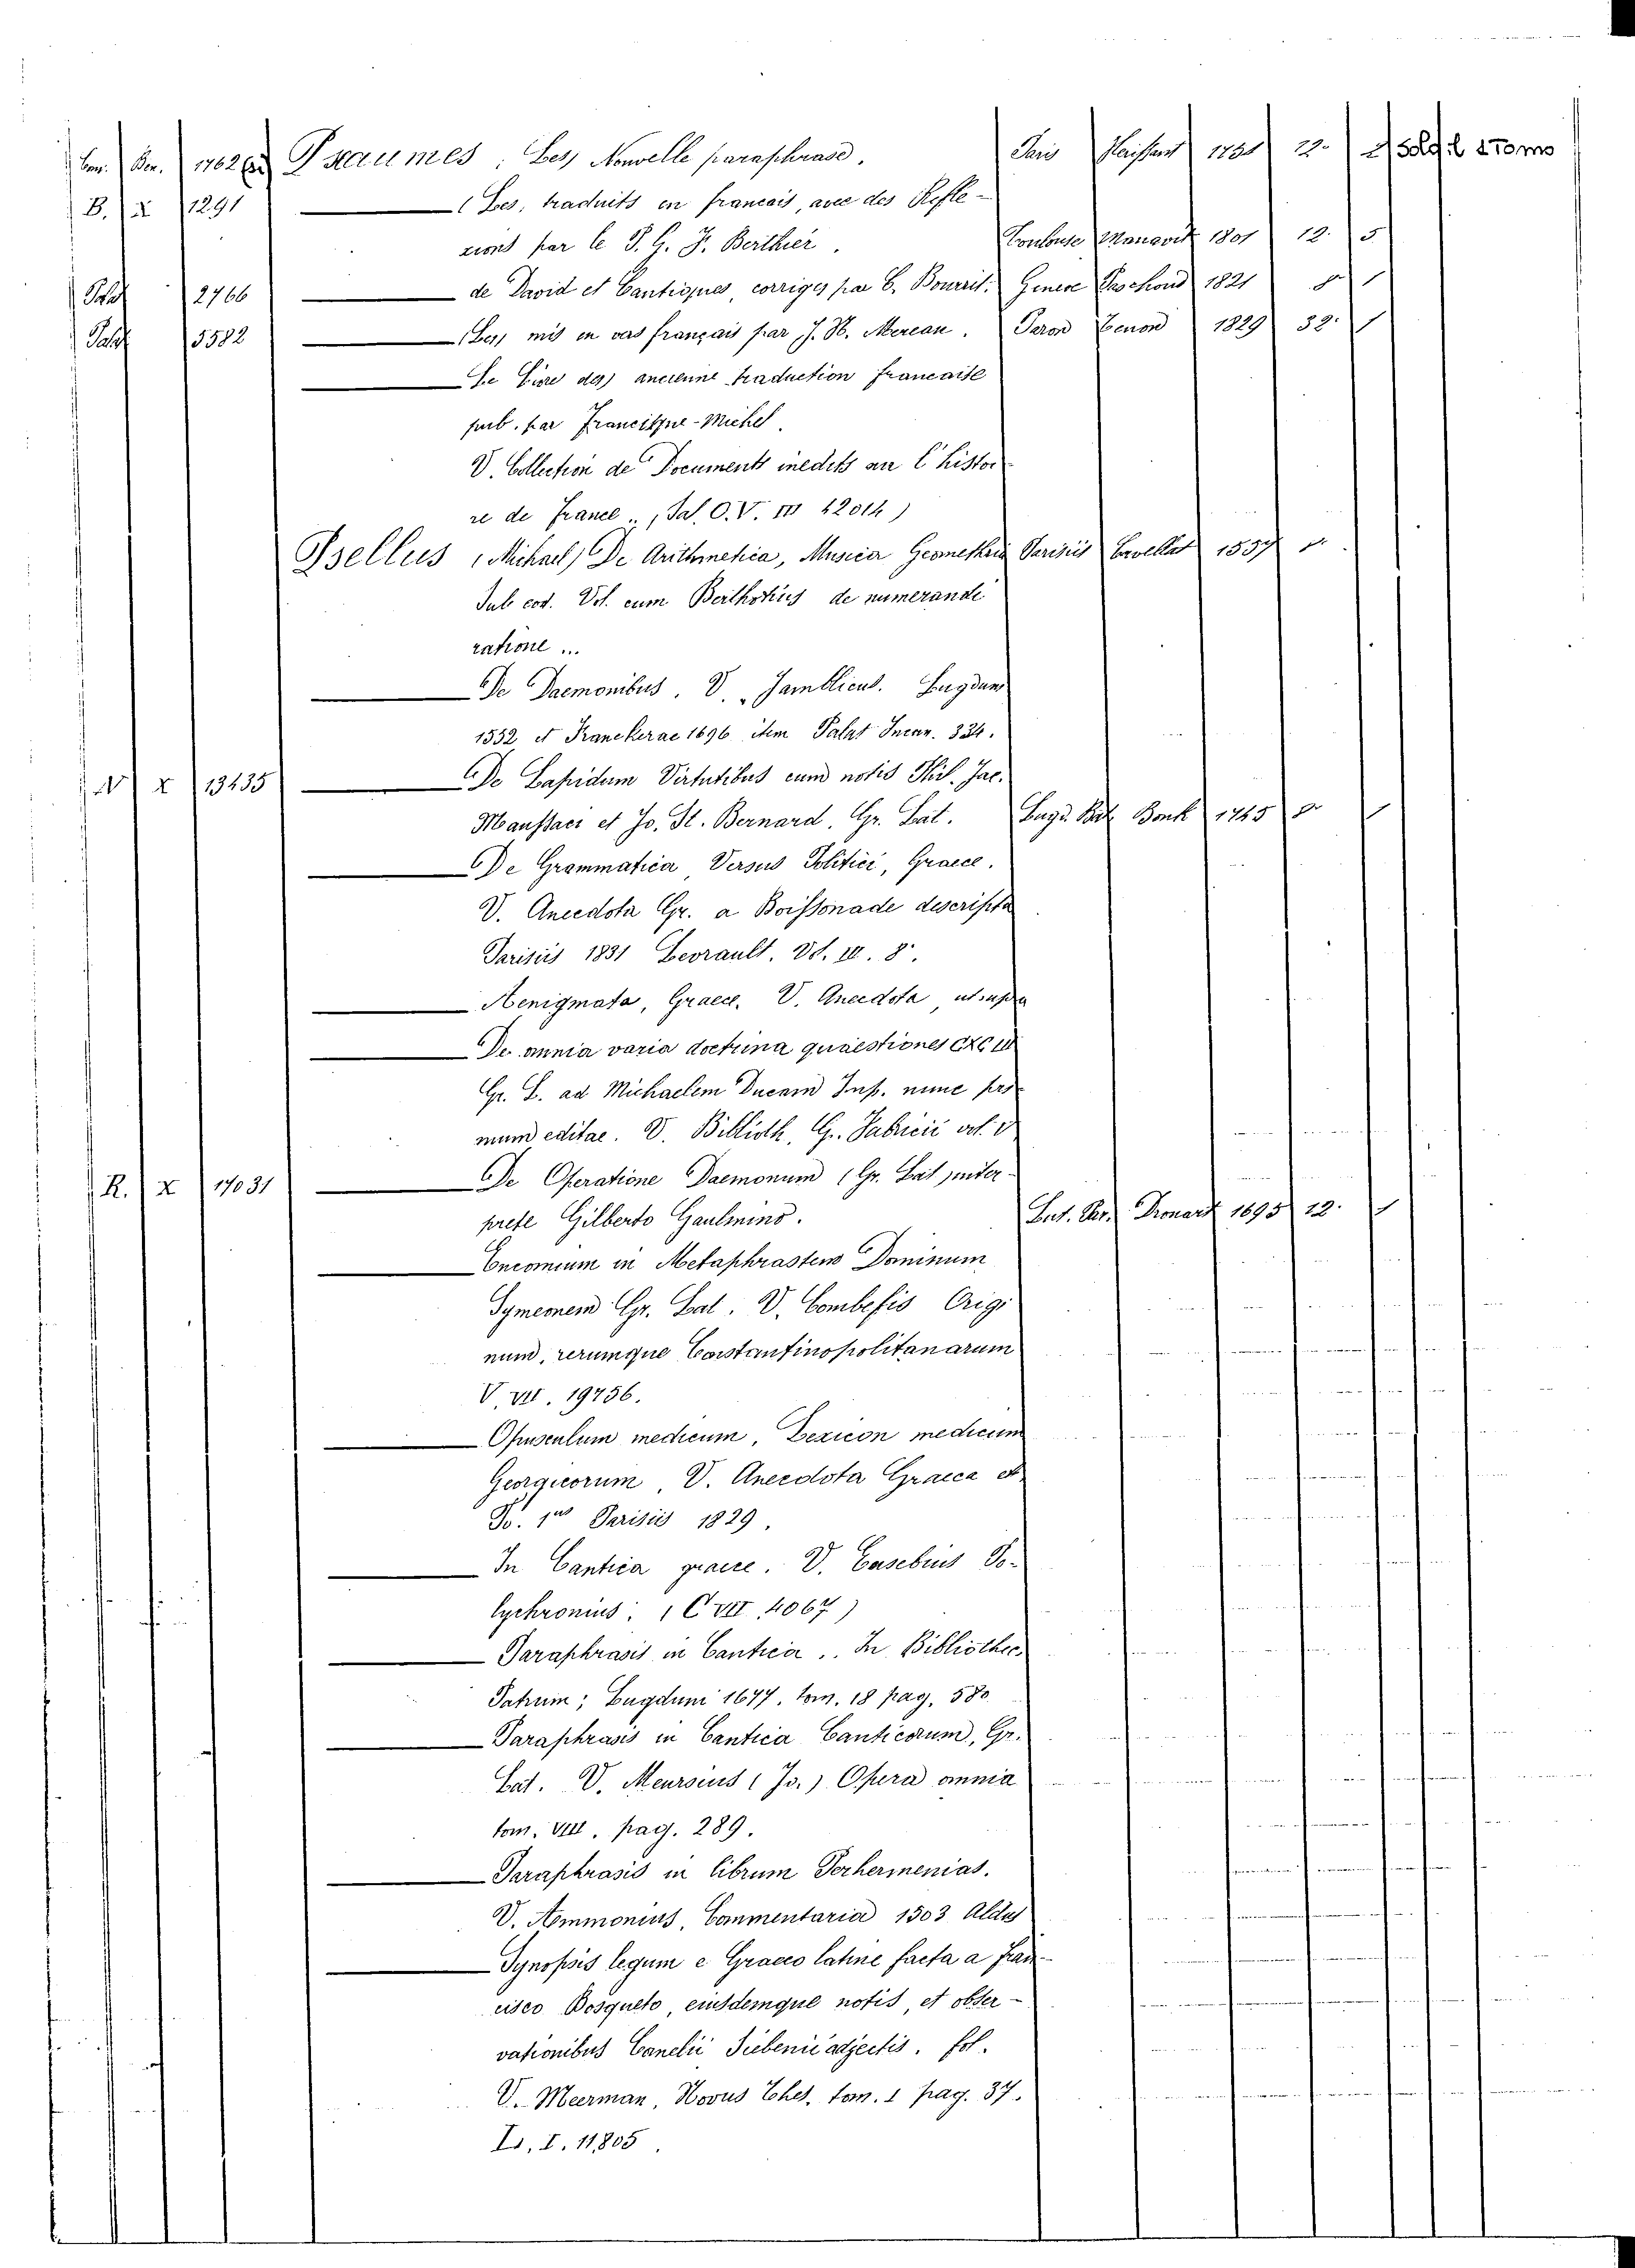 Psaumes, Les, Nouvelle paraphrase. Paris 12.
B. X 1291 (Les, traduits en francais, avec des Refle-
xions par le P. G. F. Berthier. Toulouse Manavit 1801 12. 5
Palat 2766 de David et Cantiques, corriges par C. Bourrit. Geneve Paschoud 1821 8° 1
Palat 5582 (Les, mis en vers français par J. H. Merean. Zenon 1829 32. 1
Le Livre des) ancienne traduction francaise
pub. par Francisque-Michel.
V. Collection de Documents inedits sur l'histoi
re de France ., (Sal. O. V. III 42014)
Psellus (Michael) De Arithmetica, Musica Geometria Parisiis Cavellat 1557 8°
Sub eod. Vol. cum Berthotius de numerandi
ratione ...
De Daemonibus. V. Jamblicus. Lugduni
1552 et Franekerae 1696 item Palat Incun. 334.
N X 13435 De Lapidum Virtutibus cum notis Phil. Jac.
Maussaci et Jo. St. Bernard. Gr. Lat. Lugd. Bat. Bonk 1745 8° 1
De Grammatica Versus Politici, Graece.
V. Anecdota Gr. a Boissonade descripta
Parisiis 1831 Levrault. Vol. III. 8°.
Aenigmata, Graece. V. Anecdota, ut supra
De omnia varia doctrina quaestiones
Gr. L. ad Michaelem Ducam Imp. nunc pri
mum editae. V. Biblioth. G. Fabricii vol. V
R. X 17031 De Operatione Daemonum (Gr. Lat) inter-
prete Gilberto Gaulmino. Lut. Par. Dronart 1695 12. 1
Encomium in Metaphrastem Dominum
Symeonem Gr. Lat. V. Combefis Origi
num, rerumque Constantinopolitanarum
V. VII. 19756.
Opusculum medicum, Lexicon medicum
Georgicorum, V. Anecdota Graeca et
To. 1us Parisiis 1829.
In Cantica graece. V. Eusebius Po-
lychronius. (C VII 4067)
Paraphrasis in Cantica.. In Bibliothec.
Patrum; Lugduni 1677. tom. 18 pag. 580
Paraphrasis in Cantica Canticorum, Gr.
Lat. V. Meursius (Jo.) Opera omnia
tom. VIII. pag. 289.
Paraphrasis in librum Perhermenias.
V. Ammonius, Commentaria 1503 Aldus
Synopsis legum e Graeco latine facta a Fran-
cisco Bosqueto, eiusdemque notis, et obser-
vationibus Canelii Siebenii adjectis. fol.
V. Meerman, Novus Thes. tom. 1 pag. 37.
I. 11,805.